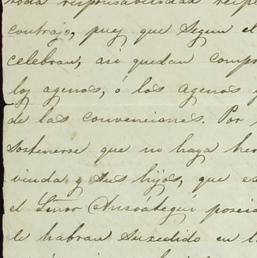 toda responsabilidad respe
contrajo, pues que segun el
celebran, asi quedan compr
los agenos, ó los agenos y
de las convenciones. Por
sostenerse que no haya her
viuda y sus hijos, que es
el Señor Anzoátegui poseia
le habran sucedido en l